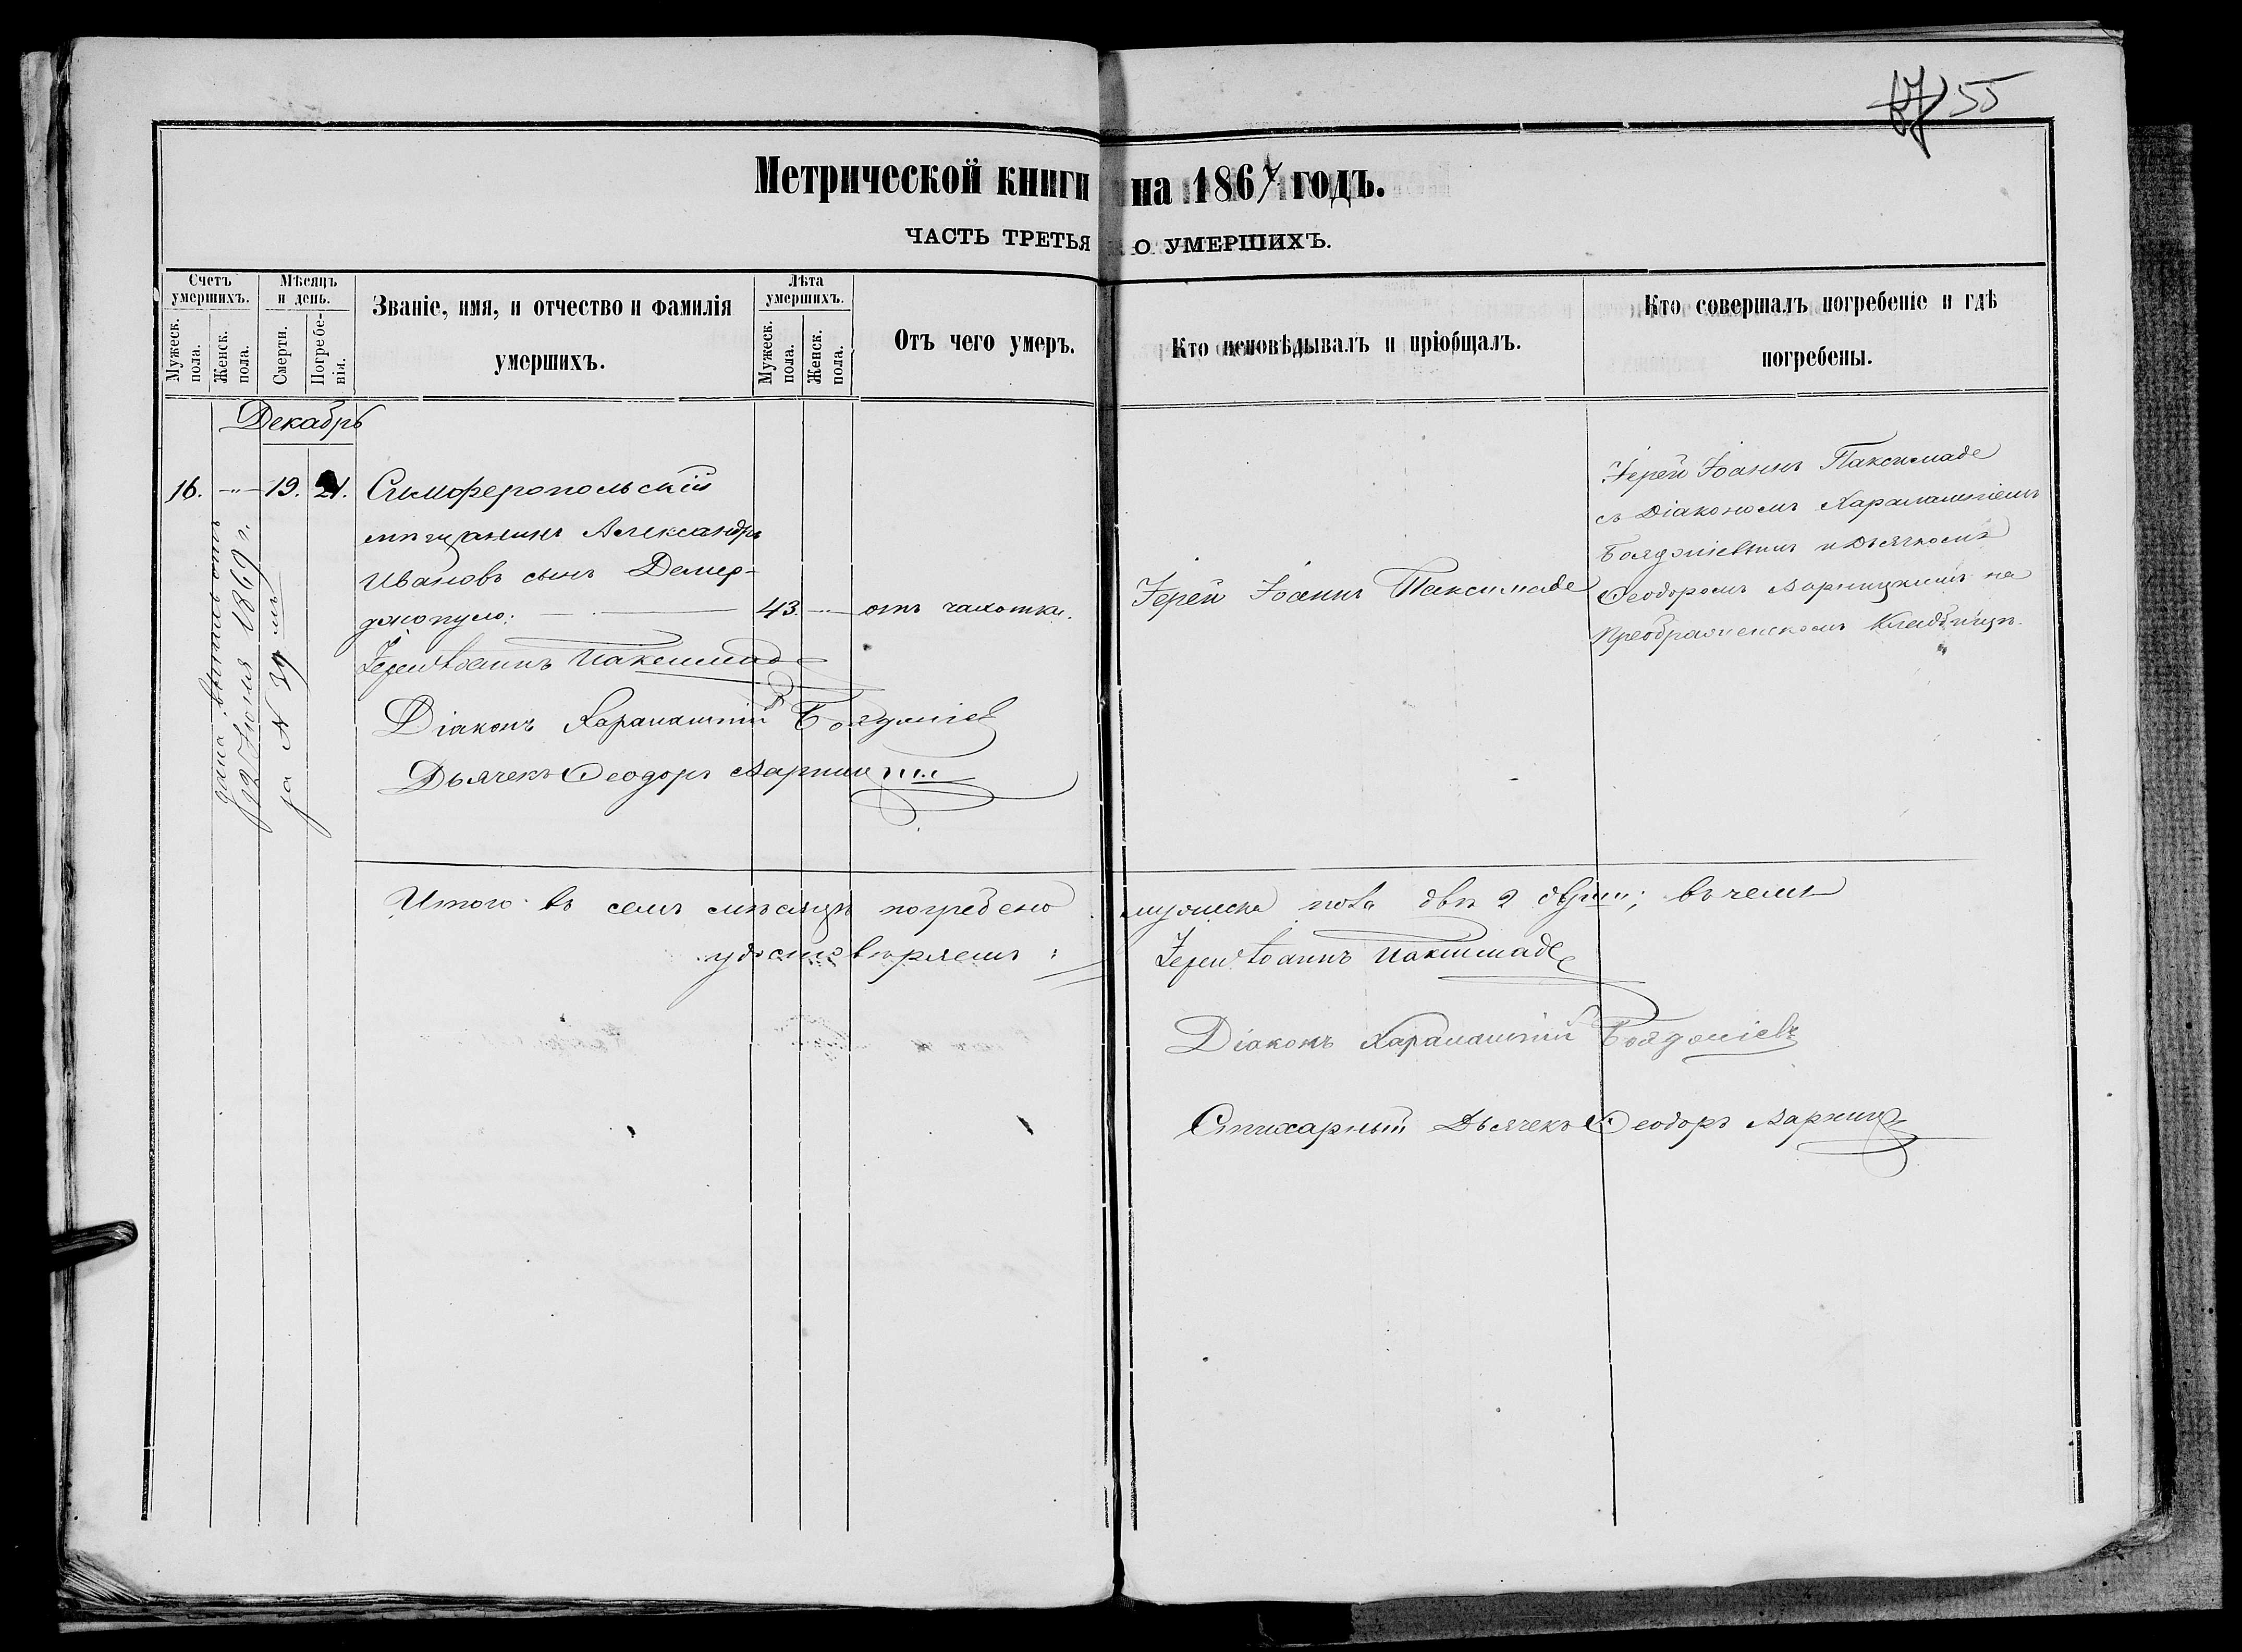 55
Метрической книги на 1867 годъ.
ЧАСТЬ ТРЕТЬЯ О УМЕРШИХЪ.
Счетъ умершихъ.
Мужеск. пола.
Женск. пола.
Мѣсяцъ и день.
Смерти.
Погребенія.
Званіе, имя, и отчество и фамилія
умершихъ.
Лѣта умершихъ.
Мужеск. пола.
Женск. пола.
Отъ чего умеръ.
Кто исповѣдывалъ и пріобщалъ.
Кто совершалъ погребеніе и гдѣ
погребены.
Декабрь
16. —"— 19. 21. Симферопольскій
мѣщанинъ Александръ
Ивановъ сынъ Демер-
джопуло: 43. — отъ чахотки.
Іерей Іоаннъ Паксимаде
Іерей Іоаннъ Паксимаде
съ Діакономъ Харалампіемъ
Бояджіевымъ и Дьячкомъ
Ѳеодоромъ Варницкимъ на
Преображенскомъ Кладбищѣ.
дана выпись отъ
22 Іюня 1869 г.
за N 39 мъ
Іерей Іоаннъ Паксимаде
Діаконъ Харалампій Бояджіев
Дьячекъ Ѳеодоръ Варницкій
Итого въ семъ мѣсяцѣ погребено мужеска пола двѣ 2 души; въ чемъ
удостовѣряемъ:
Іерей Іоаннъ Паксимаде
Діаконъ Харалампій Бояджіевъ
Стихарный Дьячекъ Ѳеодоръ Варниц